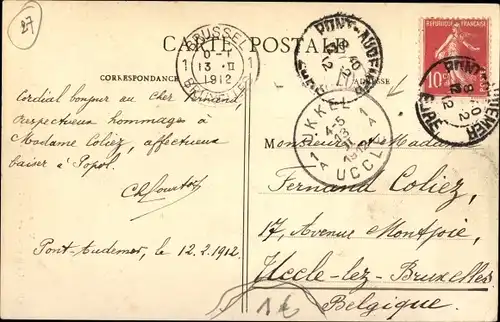 27
CARTE POSTALE
BRUSSEL
1 1
13 • II
1912
BRUXELLES
PONT-AUDEMER
EURE
RÉPUBLIQUE FRANÇAISE
10
PONT-AUDEMER
EURE
CORRESPONDANCE
ADRESSE
UKKEL
1A 1A
4-5
13
1912
UCCLE
Cordial bonjour au cher Fernand,
respectueux hommages à
Madame Coliez, affectueux
baiser à Popol.
Pont-Audemer, le 12.2.1912
Monsieur et Madame
Fernand Coliez,
17, Avenue Montjoie,
Uccle-lez-Bruxelles
Belgique.
1€